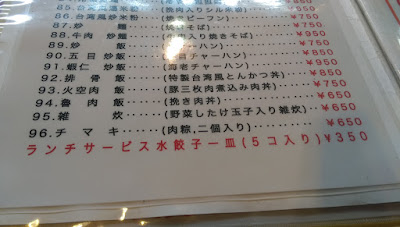 86.台湾風炒米粉(焼きビーフン)‥‥‥‥¥750
87.炒　　　麺(焼そば)‥‥‥‥¥750
88.牛肉　炒麺(牛肉入り焼きそば)‥‥‥‥¥950
89.炒　　　飯(チャーハン)‥‥‥‥¥750
90.五目炒飯(五目チャーハン)‥‥‥‥¥850
91.蝦仁　炒飯(海老チャーハン)‥‥‥‥¥950
92.排　骨　飯(特製台湾風とんかつ丼)‥‥‥‥¥850
93.火空肉　飯(豚三枚肉煮込み肉丼)‥‥‥‥¥750
94.魯　肉　飯(挽き肉丼)‥‥‥‥¥650
95.雑　　　炊(野菜したけ玉子入り雑炊)‥‥‥‥¥650
96.チ　マ　キ(肉粽,二個入り)‥‥‥‥¥650
ランチサービス水餃子一皿(5コ入り)¥350